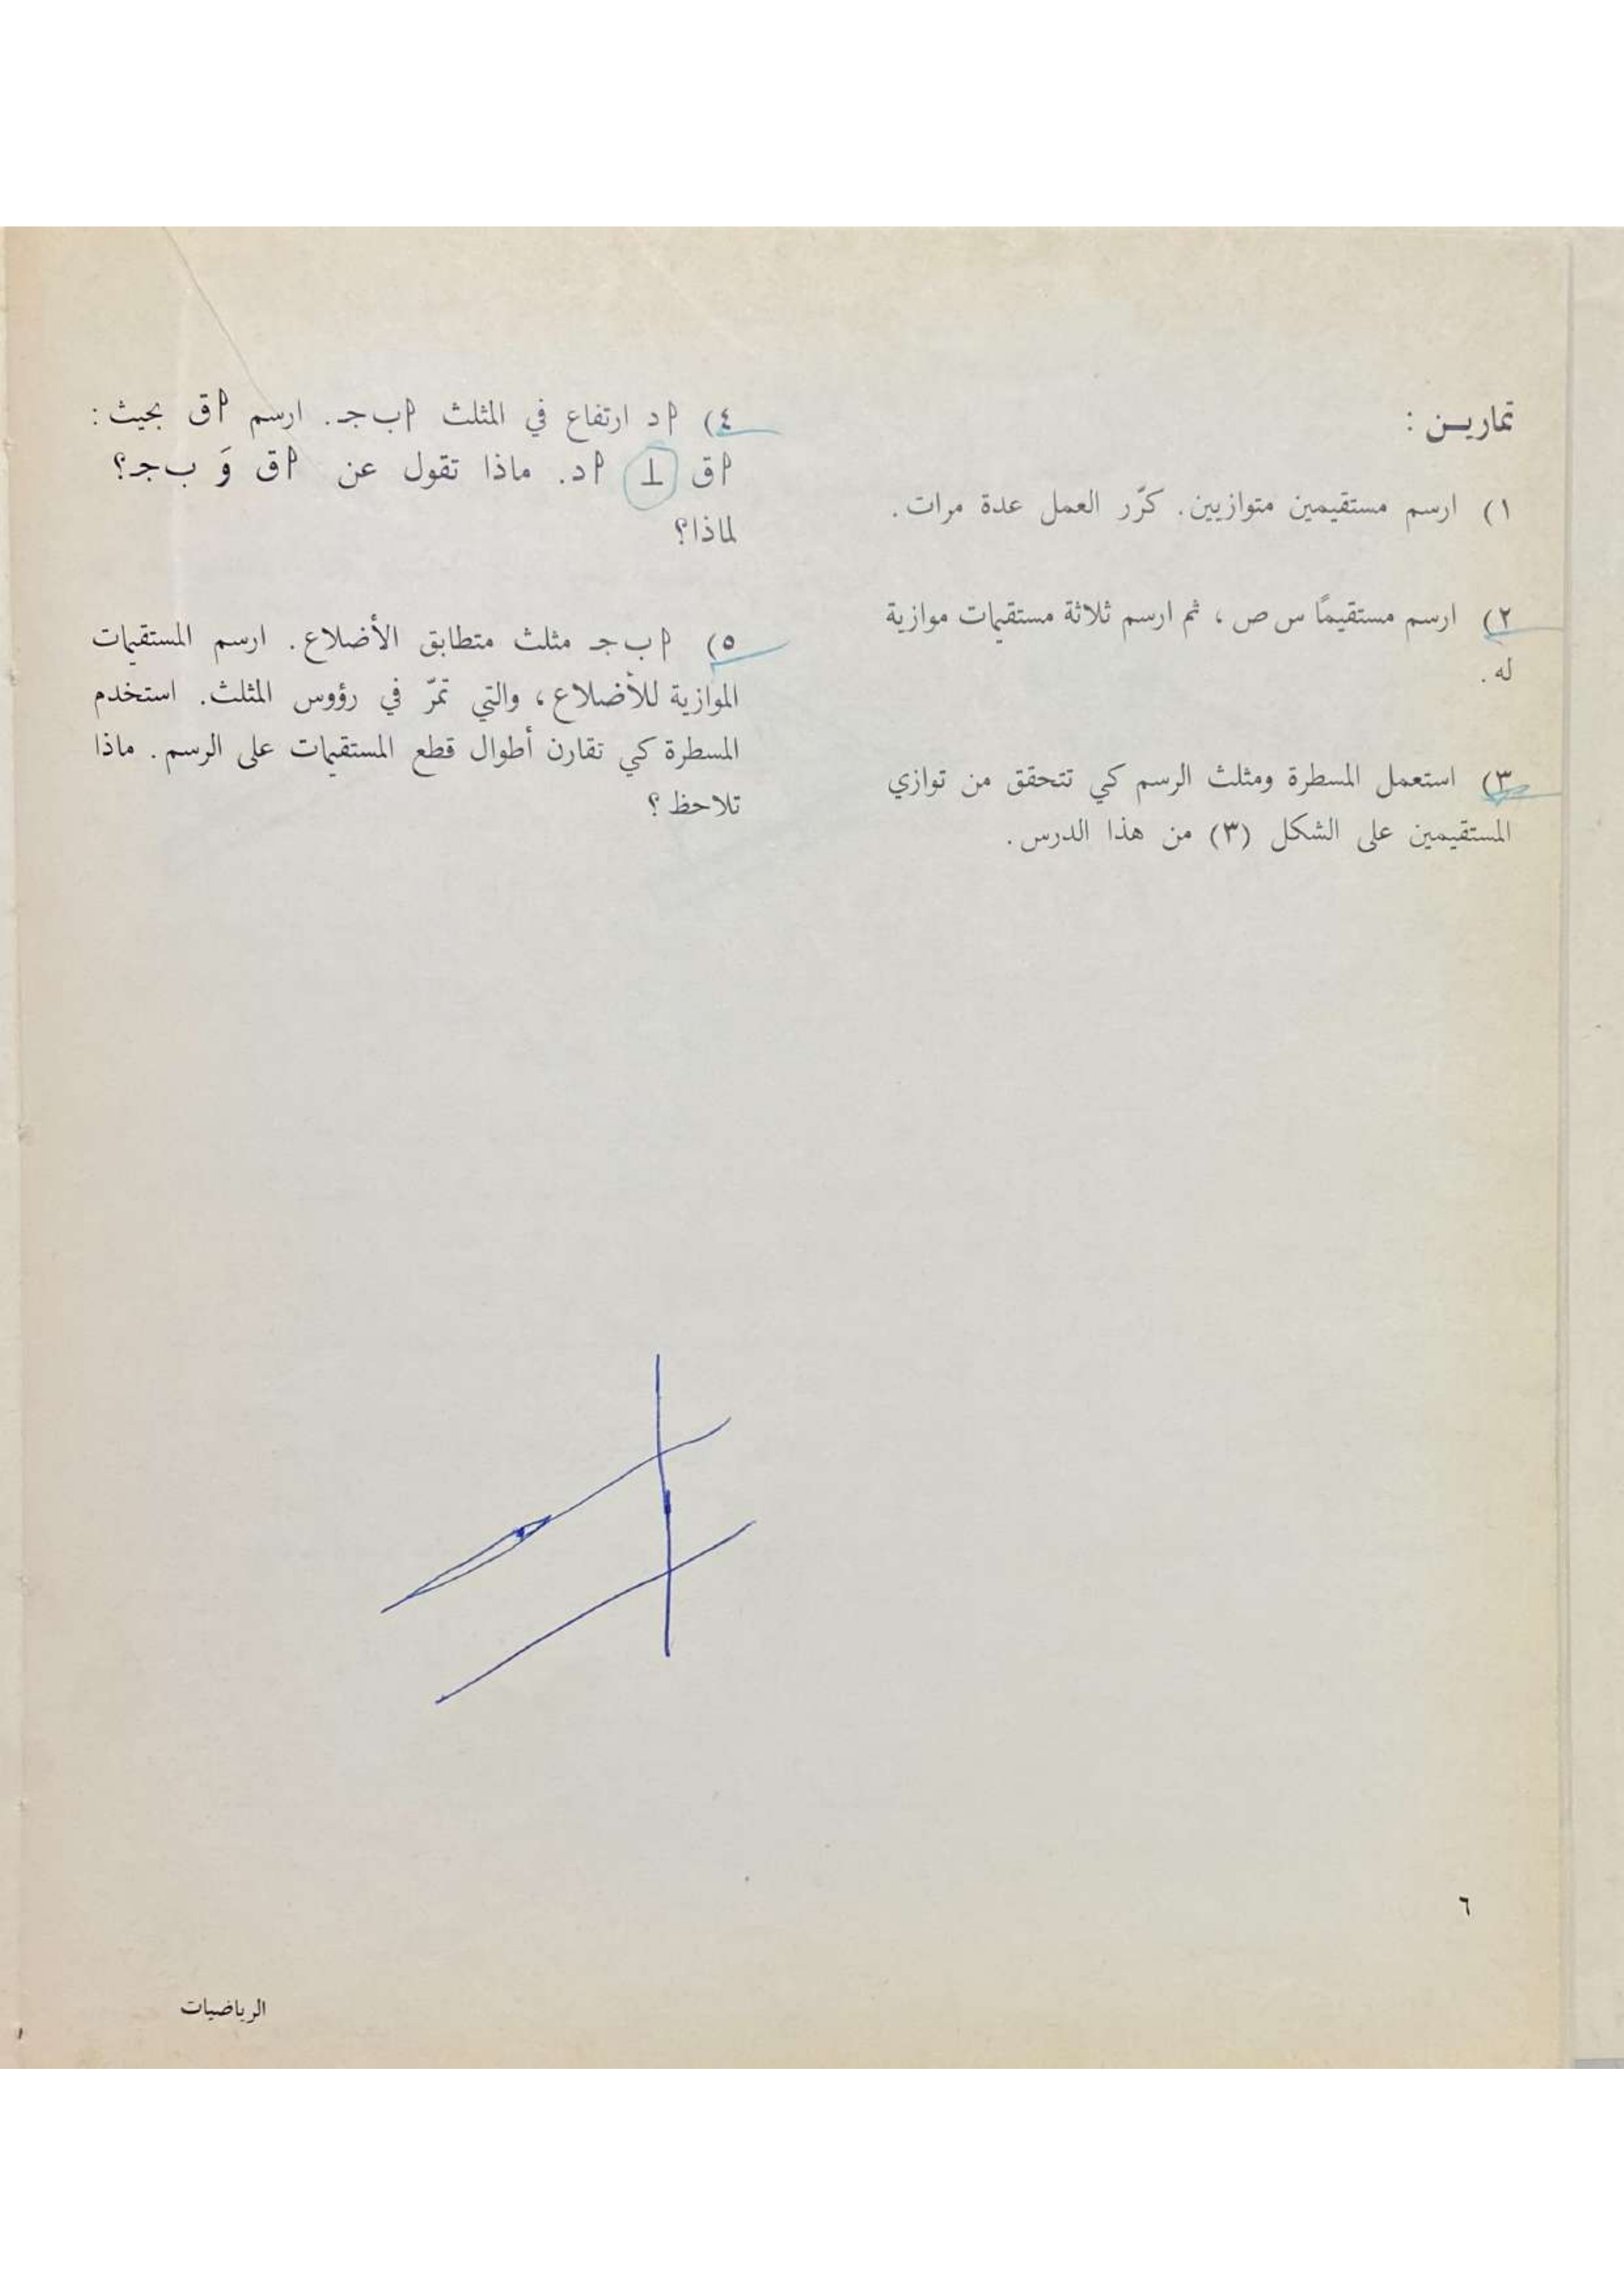 تمارين :
١) ارسم مستقيمين متوازيين. كرّر العمل عدة مرات.
٢) ارسم مستقيمًا س ص، ثم ارسم ثلاثة مستقيمات موازية
له.
٣) استعمل المسطرة ومثلث الرسم كي تتحقق من توازي
المستقيمين على الشكل (٣) من هذا الدرس.
٤) أ د ارتفاع في المثلث أ ب جـ. ارسم أ ق بحيث:
أ ق ⊥ أ د. ماذا تقول عن أ ق وَ ب جـ؟
لماذا؟
٥) أ ب جـ مثلث متطابق الأضلاع. ارسم المستقيمات
الموازية للأضلاع، والتي تمرّ في رؤوس المثلث. استخدم
المسطرة كي تقارن أطوال قطع المستقيمات على الرسم. ماذا
تلاحظ؟
٦
الرياضيات